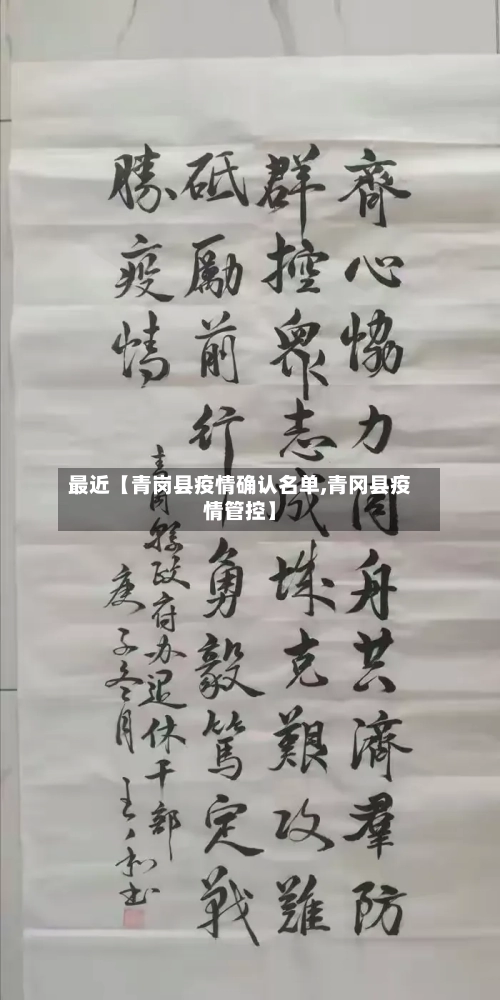 齊心恊力同舟共濟羣防
群控眾志成城克艱攻難
砥勵前行勇毅篤定戰
勝疫情
青冈縣政府办退休干部
庚子冬月
最近【青岗县疫情确认名单,青冈县疫
情管控】